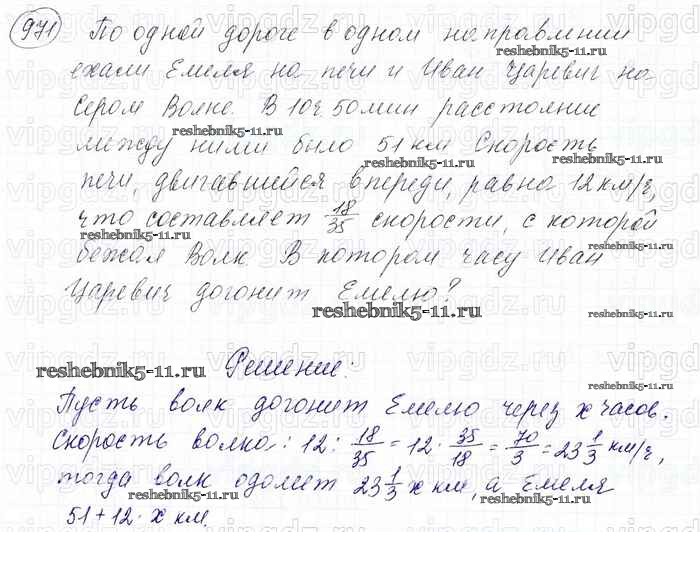 971 По одной дороге в одном направлении
ехали Емеля на печи и Иван Царевич на
Сером Волке. В 10 ч. 50 мин расстояние
между ними было 51 км Скорость
печи, двигавшейся впереди, равна 12 км/ч,
что составляет 18/35 скорости, с которой
бежал Волк В котором часу Иван
Царевич догонит Емелю?
Решение:
Пусть волк догонит Емелю через x часов.
Скорость волка: 12 : 18/35 = 12 · 35/18 = 70/3 = 23 1/3 км/ч,
тогда волк одолеет 23 1/3 x км, а Емеля
51 + 12 · x км.
reshebnik5-11.ru
vipgdz.ru